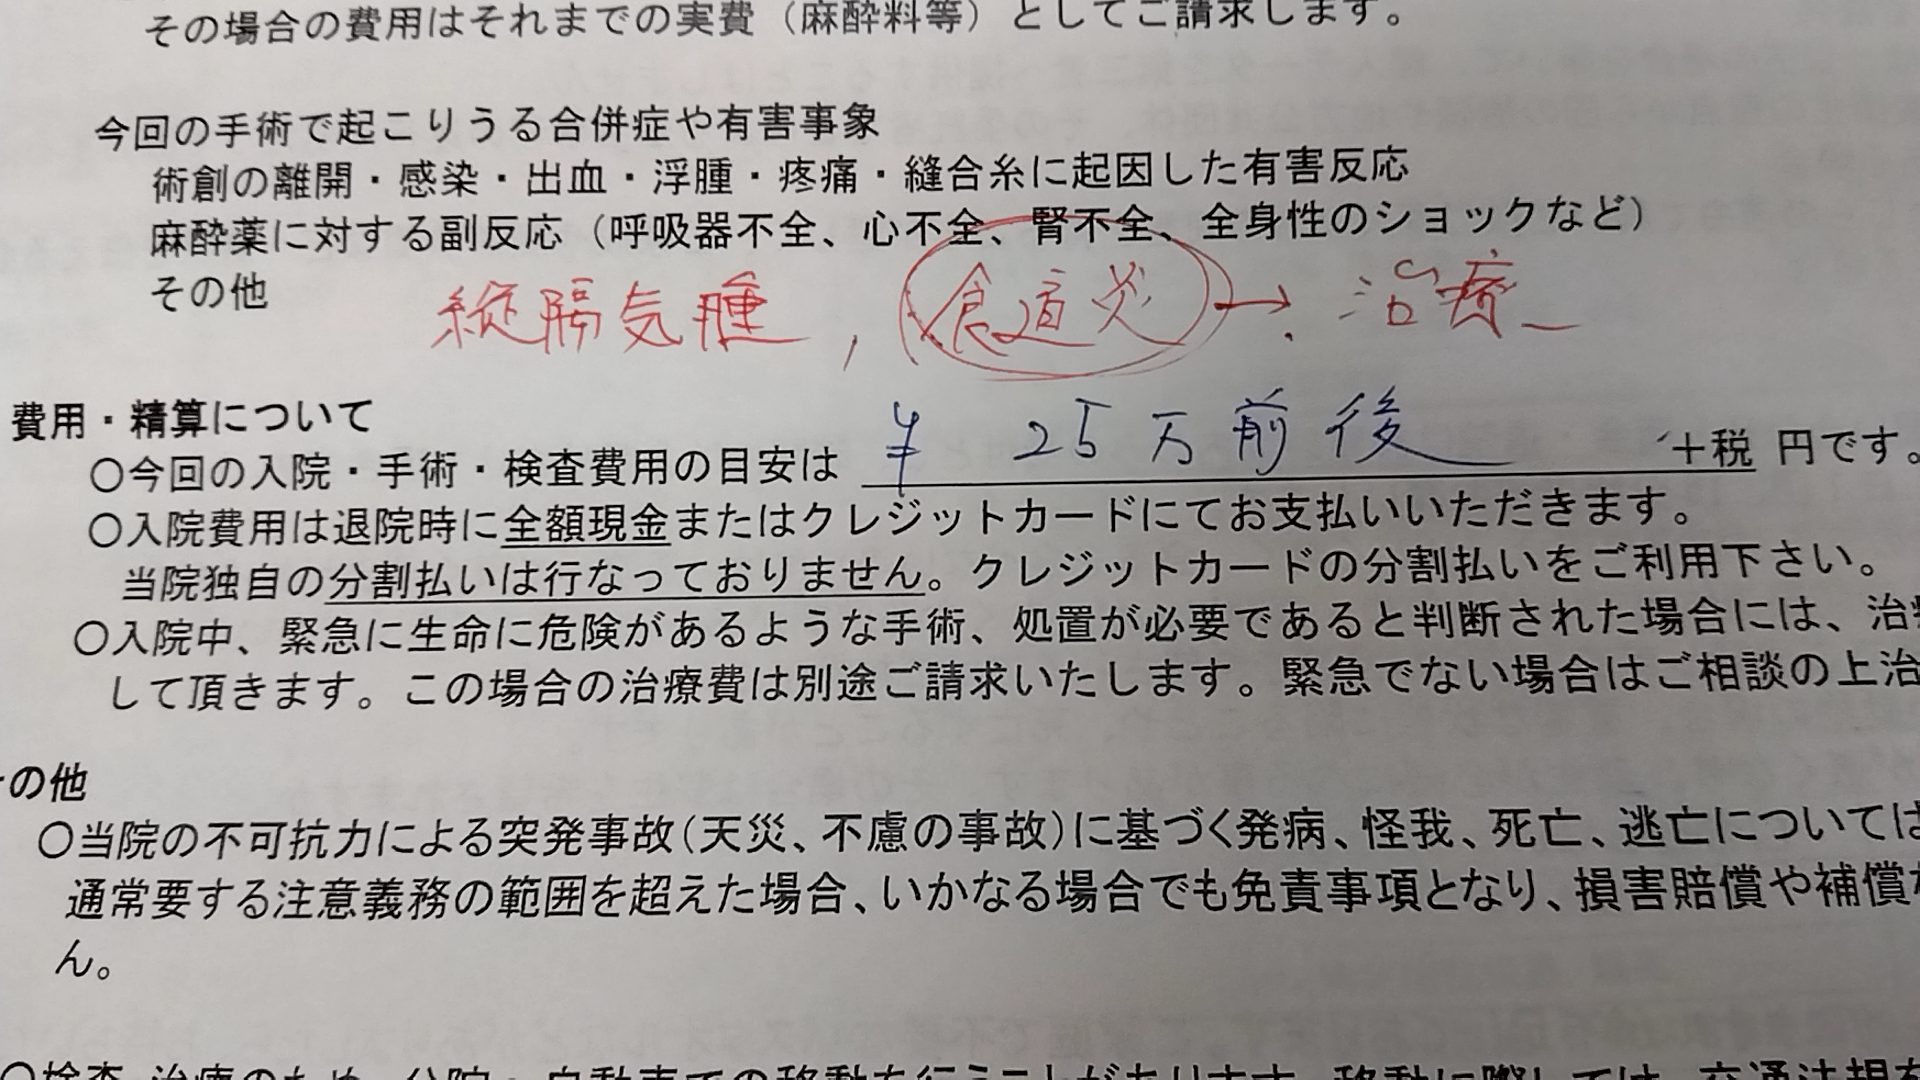 その場合の費用はそれまでの実費（麻酔料等）としてご請求します。
今回の手術で起こりうる合併症や有害事象
術創の離開・感染・出血・浮腫・疼痛・縫合糸に起因した有害反応
麻酔薬に対する副反応（呼吸器不全、心不全、腎不全、全身性のショックなど）
その他 縦隔気腫, 食道炎→治療
費用・精算について
〇今回の入院・手術・検査費用の目安は ¥ 25万前後 +税 円です。
〇入院費用は退院時に全額現金またはクレジットカードにてお支払いいただきます。
当院独自の分割払いは行なっておりません。クレジットカードの分割払いをご利用下さい。
〇入院中、緊急に生命に危険があるような手術、処置が必要であると判断された場合には、治療
して頂きます。この場合の治療費は別途ご請求いたします。緊急でない場合はご相談の上治
の他
〇当院の不可抗力による突発事故（天災、不慮の事故）に基づく発病、怪我、死亡、逃亡については
通常要する注意義務の範囲を超えた場合、いかなる場合でも免責事項となり、損害賠償や補償
ん。
〇検査・治療のため、分院へ自動車での移動を行うことがあります。移動に際しては、交通法規を